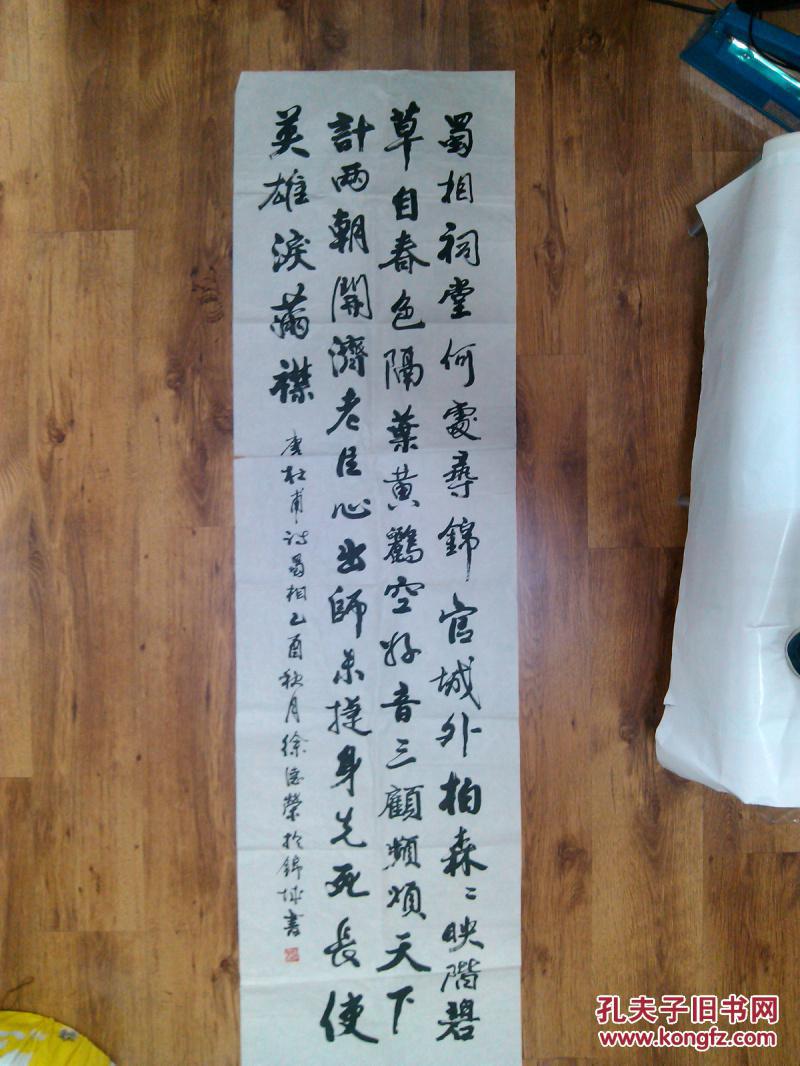 蜀相祠堂何處尋錦官城外柏森〻映階碧
草自春色隔葉黃鸝空好音三顧頻煩天下
計兩朝開濟老臣心出師未捷身先死長使
英雄淚滿襟
唐杜甫詩蜀相乙酉秋月徐德榮於錦城書
孔夫子旧书网
www.kongfz.com